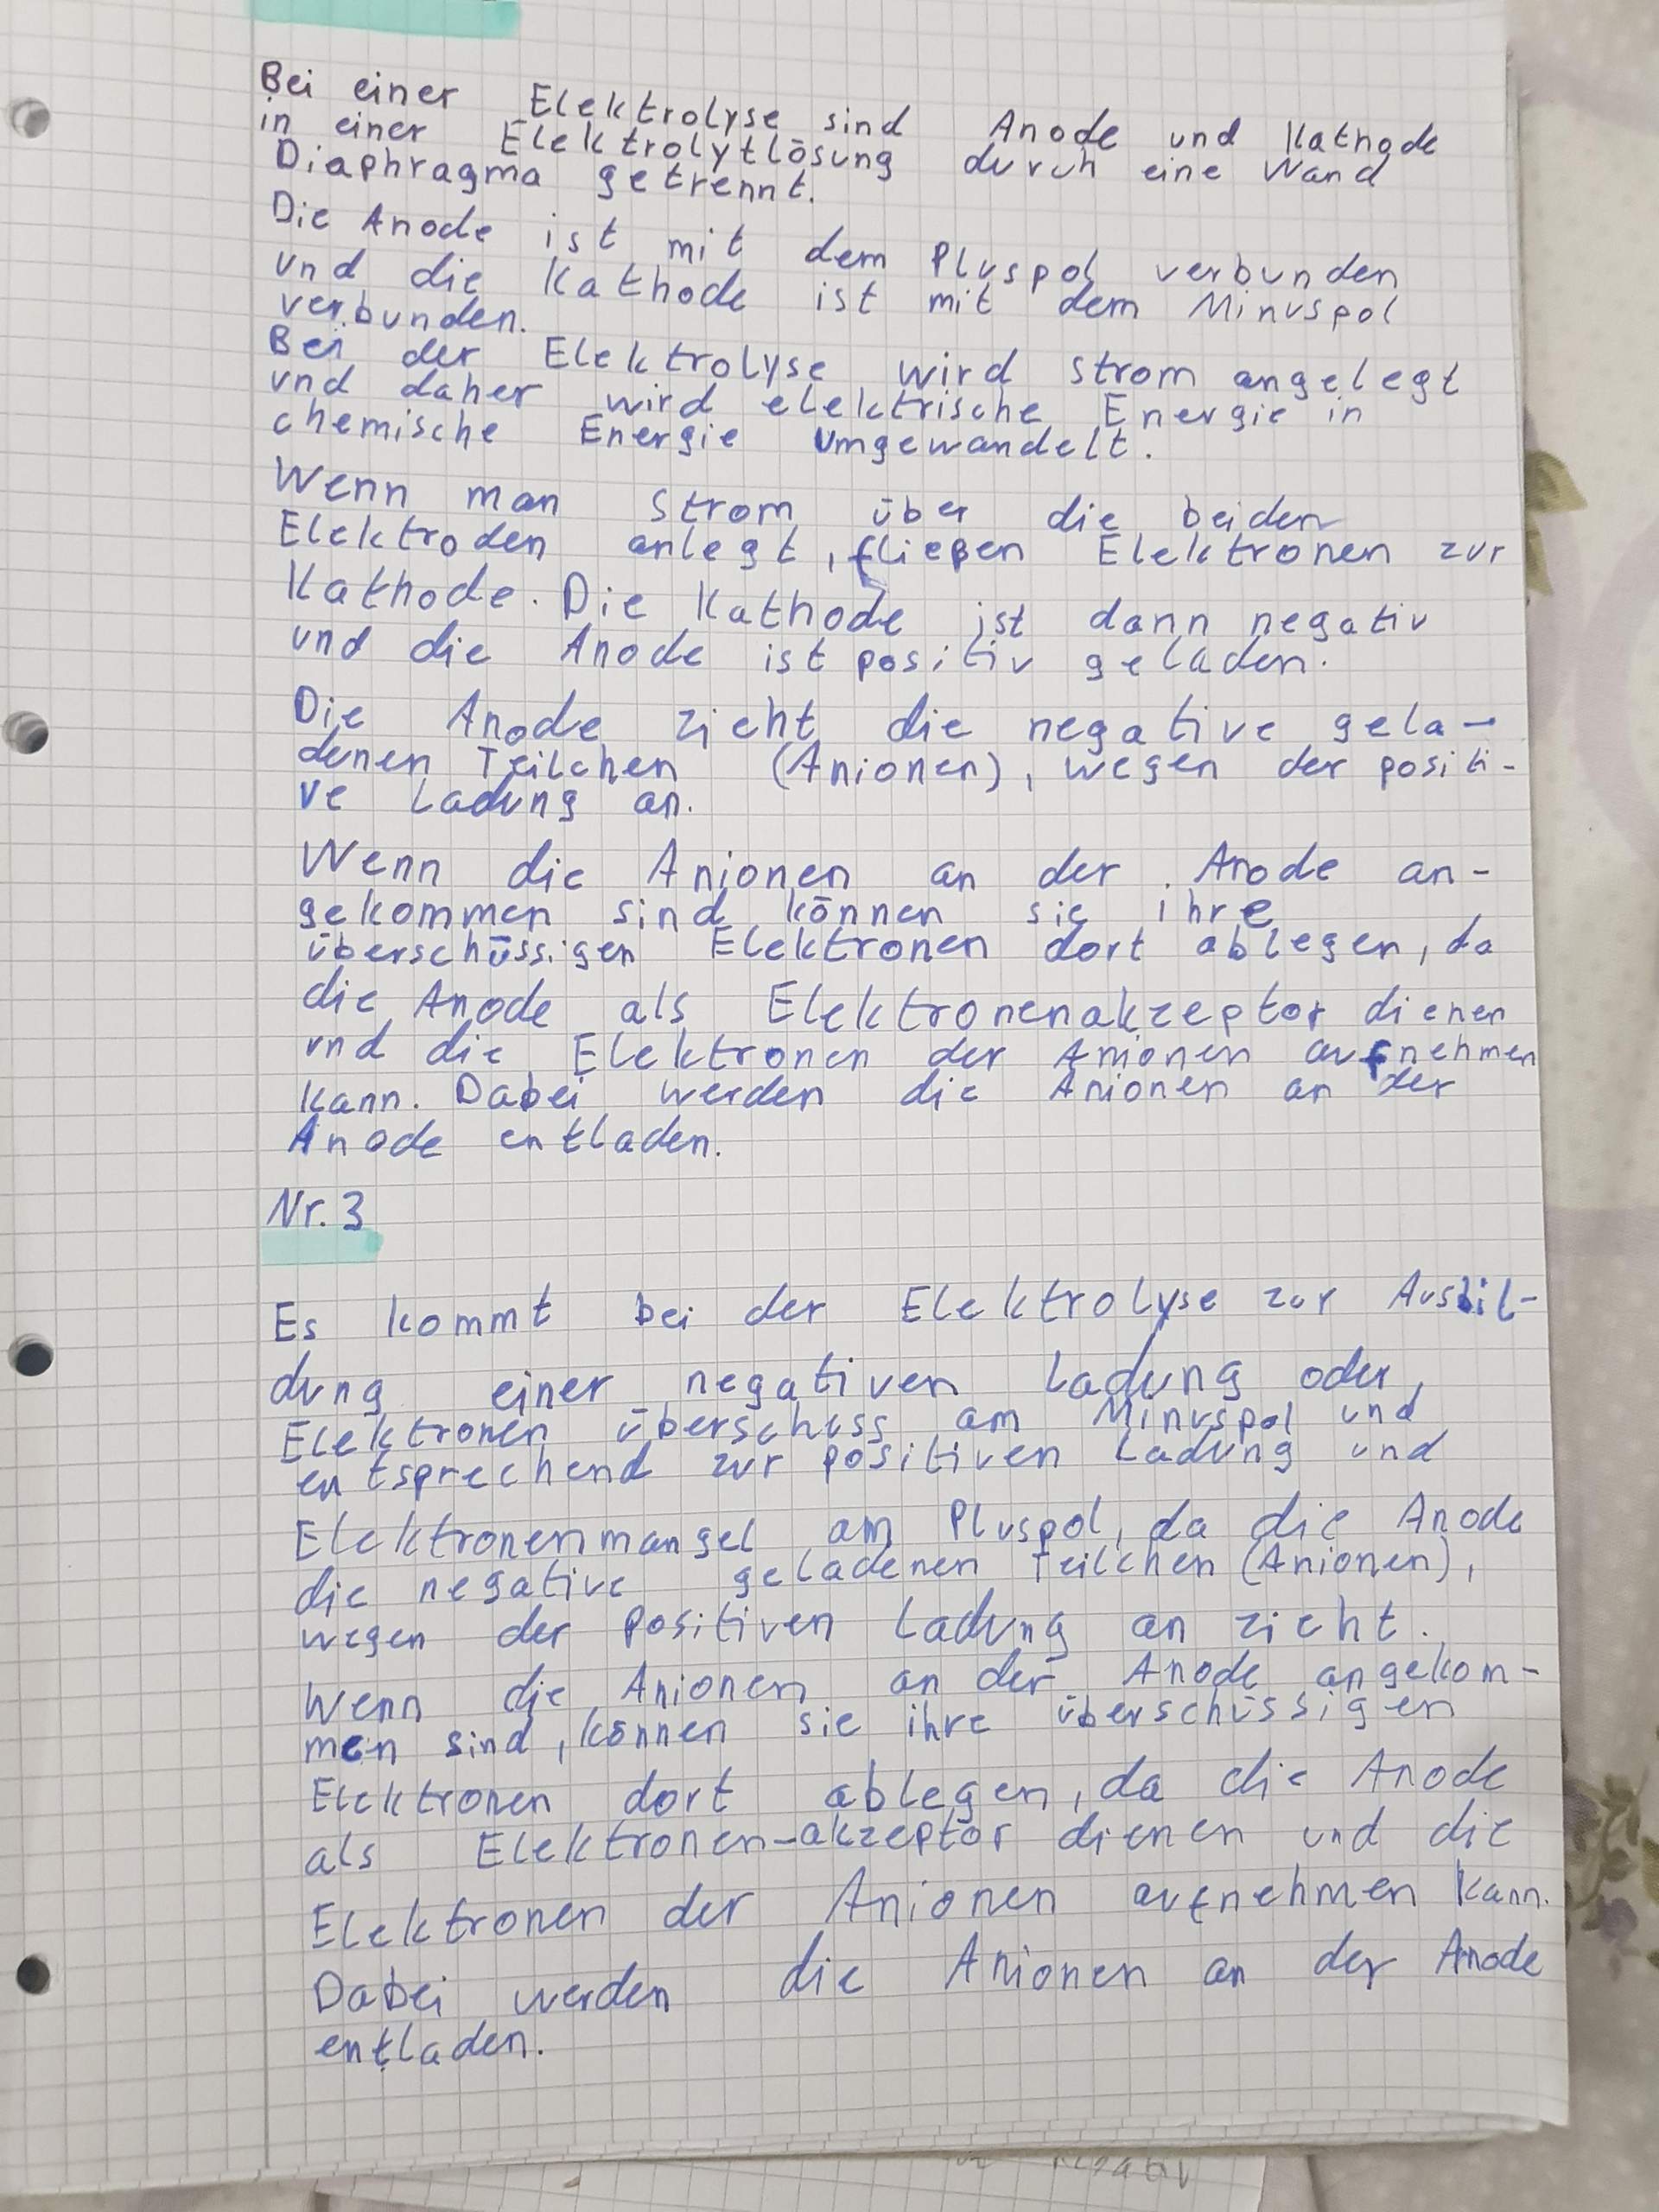 Bei einer Elektrolyse sind Anode und Kathode
in einer Elektrolytlösung durch eine Wand
Diaphragma getrennt.
Die Anode ist mit dem Pluspol verbunden
und die Kathode ist mit dem Minuspol
verbunden.
Bei der Elektrolyse wird strom angelegt
und daher wird elektrische Energie in
chemische Energie umgewandelt.
Wenn man strom über die beiden
Elektroden anlegt, fließen Elektronen zur
Kathode. Die Kathode ist dann negativ
und die Anode ist positiv geladen.
Die Anode zieht die negative gela-
denen Teilchen (Anionen), wegen der positi-
ve Ladung an.
Wenn die Anionen an der Anode an-
gekommen sind können sie ihre
überschüssigen Elektronen dort ablegen, da
die Anode als Elektronenakzeptor dienen
und die Elektronen der Anionen aufnehmen
kann. Dabei werden die Anionen an der
Anode entladen.
Nr. 3
Es kommt bei der Elektrolyse zur Ausbil-
dung einer negativen Ladung oder
Elektronen überschuss am Minuspol und
entsprechend zur positiven Ladung und
Elektronenmangel am Pluspol, da die Anode
die negative geladenen Teilchen (Anionen),
wegen der positiven Ladung an zieht.
Wenn die Anionen an der Anode angekom-
men sind, können sie ihre überschüssigen
Elektronen dort ablegen, da die Anode
als Elektronen-akzeptor dienen und die
Elektronen der Anionen aufnehmen kann.
Dabei werden die Anionen an der Anode
entladen.